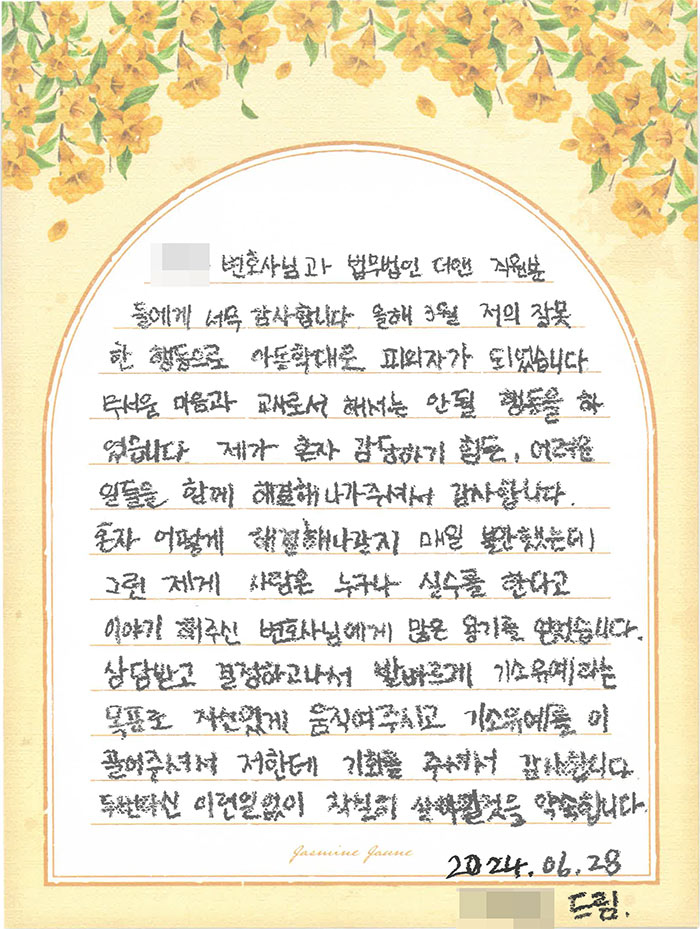 변호사님과 법무법인 더앤 직원분
들에게 너무 감사합니다. 올해 3월 저의 잘못
한 행동으로 아동학대로 피의자가 되었습니다
무서운 마음과 교사로서 해서는 안될 행동을 하
였습니다. 제가 혼자 감당하기 힘든, 어려운
일들을 함께 해결해나가주셔서 감사합니다.
혼자 어떻게 해결해나갈지 매일 불안했는데,
그런 제게 사람은 누구나 실수를 한다고
이야기 해주신 변호사님에게 많은 용기를 얻었습니다.
상담받고 결정하고나서 발빠르게 기소유예라는
목표로 자신있게 움직여주시고 기소유예를 이
끌어주셔서 저한테 기회를 주셔서 감사합니다
두번다신 이런일없이 착실히 살아갈것을 약속합니다.
Jasmine Jaune
2024.06.28
드림.